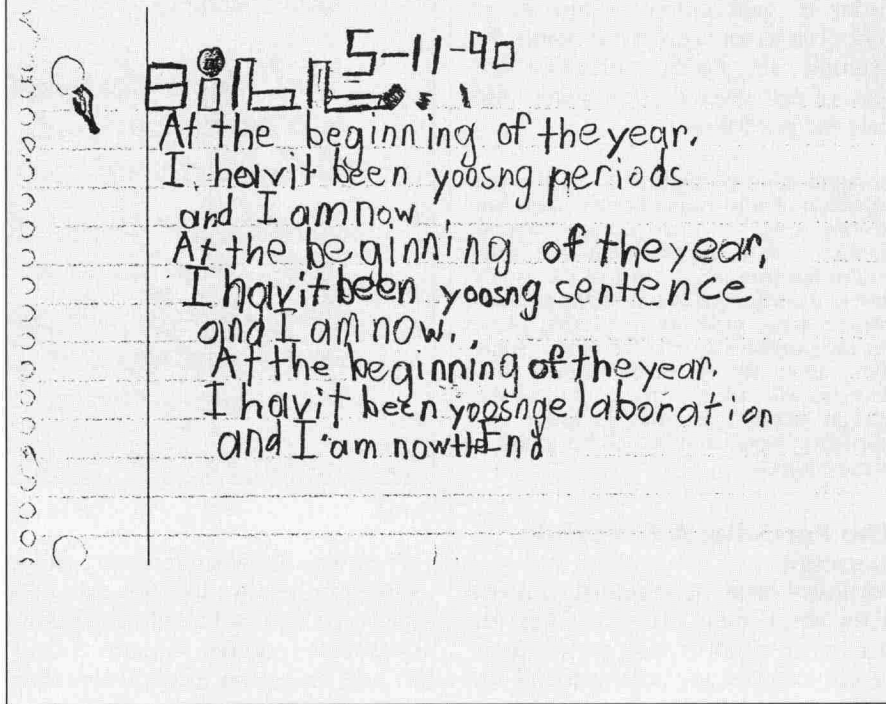 Bill 5-11-90
At the beginning of the year.
I. havit been yoosng periods
and I am now.
At the beginning of the year,
I havit been yoosng sentence
and I am now..
At the beginning of the year.
I havit been yoosng elaboration
and I am now the End